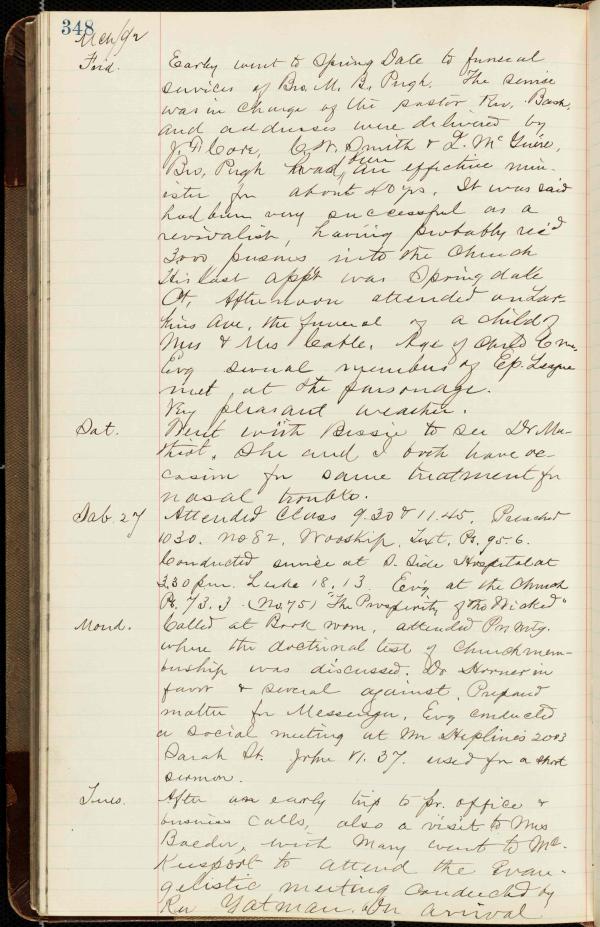 348
Mch/92
Frid. Early went to Spring Dale to funeral
services of Bro. M. B. Pugh. The service
was in charge of the pastor Rev. Bash,
and addresses were delivered by
J. F. Core, C. W. Smith & T. McGuire.
Bro. Pugh had been an effective min-
ister for about 40 yrs. It was said
had been very successful as a
revivalist, having probably rec'd
3000 persons into the Church
His last app't was Springdale
Ct. Afternoon attended on Lar-
kins Ave, the funeral of a child of
Mrs & Mrs Cable. Age of child 6 m.
Evg several members of Ep. League
met at the parsonage.
Very pleasant weather.
Sat. Went with Bessie to see Dr Ma-
thiot. She and I both have oc-
casion for same treatment for
nasal trouble.
Sab. 27 Attended Class 9.30 & 11.45. Preached
1030. No 82. Wooship. Text, Ps. 95.6.
Conducted service at S. Side Hospital at
3.30 p.m. Luke 18.13. Ev'g at the Church
Ps. 73.3 (No. 75) "The Prosperity of the Wicked"
Mond. Called at Book room, attended Pr. Mtg.
where the doctrinal test of Church mem-
bership was discussed. Dr Horner in
favor & several against. Prepared
matter for Messenger. Evg conducted
a social meeting at Mr Heplines 2003
Sarah St. John VI. 37. used for a short
sermon.
Tues. After an early trip to pr. office &
business calls, also a visit to Mrs
Baeder, with Mary went to Mc-
Keesport to attend the Evan-
gelistic meeting conducted by
Rev Yatman. On arrival